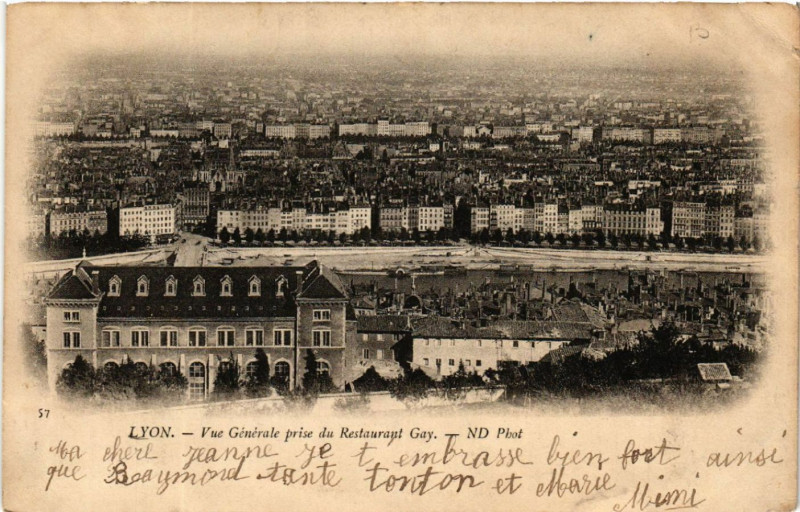 13
57
LYON. — Vue Générale prise du Restaurant Gay. — ND Phot
Ma cherè jeanne je t'embrasse bien fort ainsi
que Raymond tante tonton et Marie
Mimi